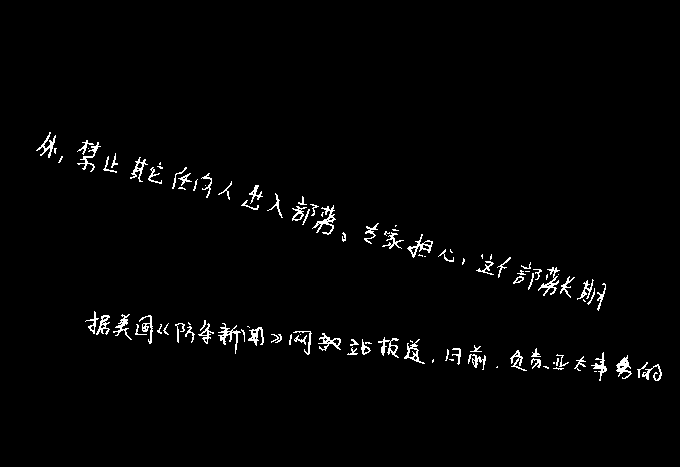 外,禁止其它任何人进入部落。专家担心,这个部落长期
据美国《防务新闻》网站报道,日前,负责亚太事务的